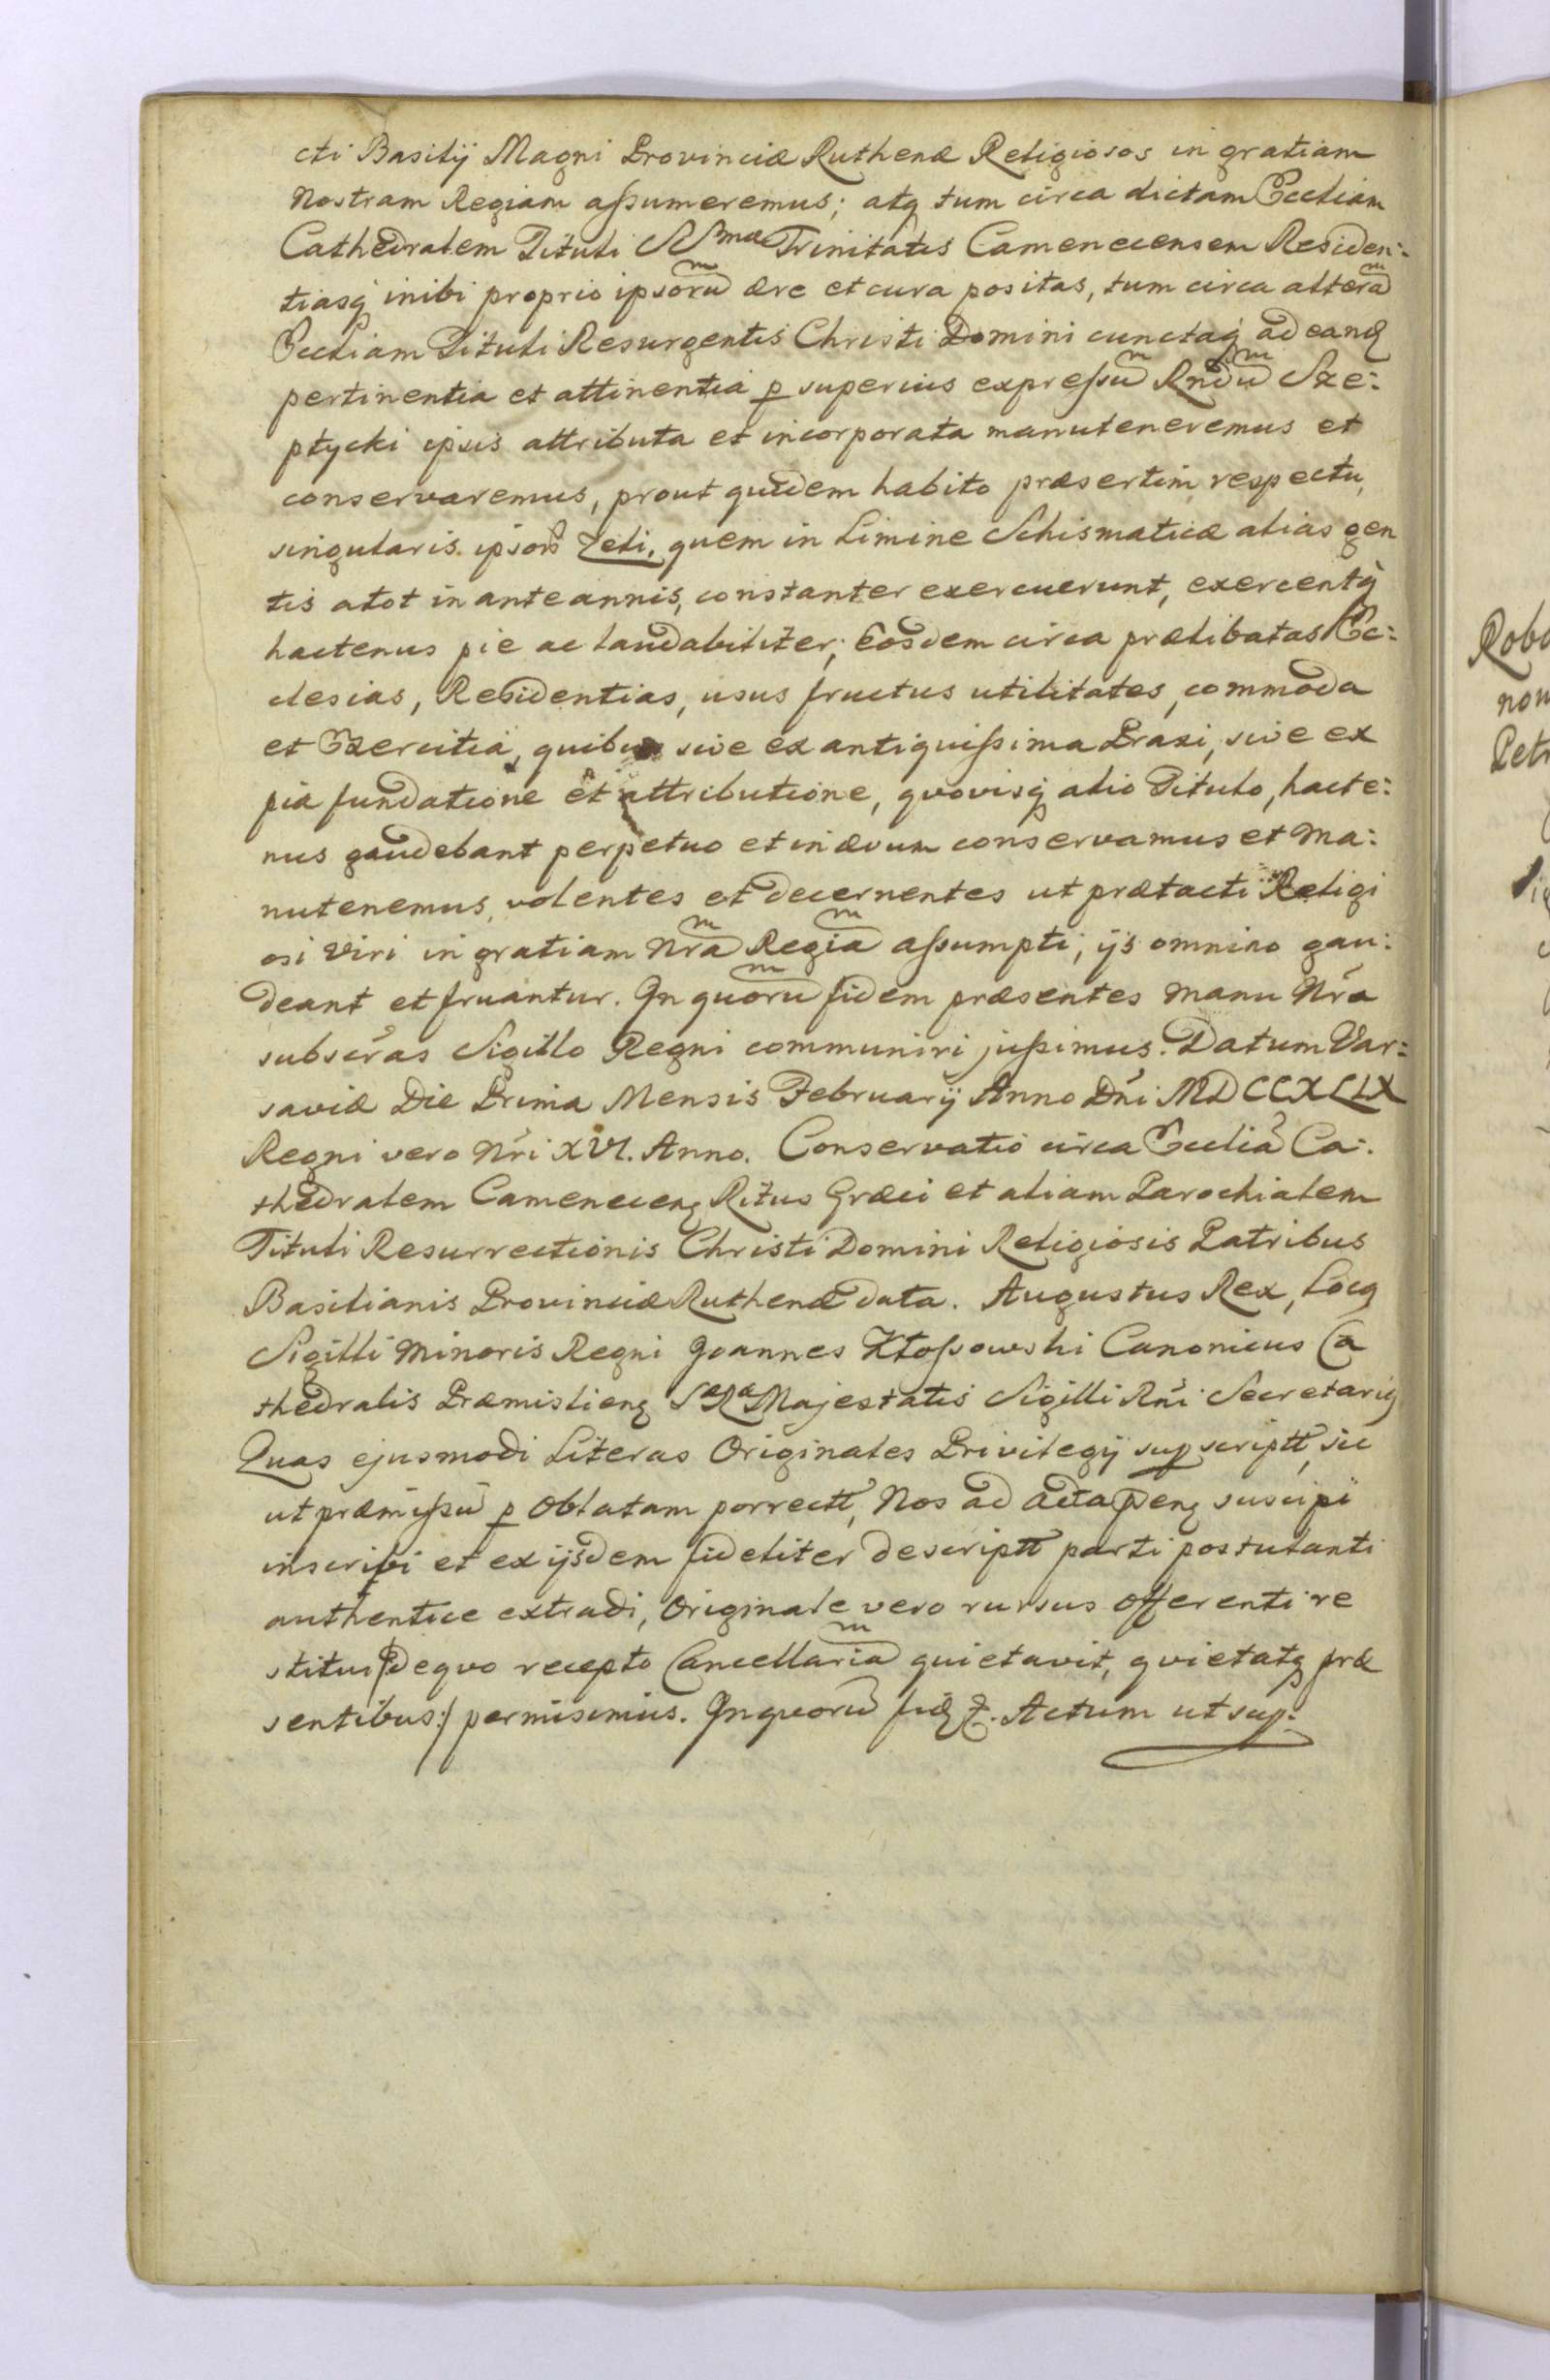 cti Basilij Magni Provinciæ Ruthenæ Religiosos in gratiam
Nostram Regiam aſsumeremus; atq tum circa dictam Eccliam
Cathedralem Tituli SSmæ Trinitatis Camenecensem Residen:
tiasq inibi proprio ipsorum ære et cura positas, tum circa alteram
Eccliam Tituli Resurgentis Christi Domini cunctaq ad eanq
pertinentia et attinentia p superius expreſsum Rndum Sze:
ptycki ipsis attributa et incorporata manuteneremus et
conservaremus, prout quidem habito præsertim respectu,
singularis ipsorũ Zeli, quem in Limine Schismaticæ alias gen
tis a tot in ante annis, constanter exercuerunt, exercentq
hactenus pie ac laudabiliter; Eosdem circa prælibatas Ec:
clesias, Residentias, usus fructus utilitates, commoda
et Exercitia, quibus sive ex antiquiſsima Praxi, sive ex
pia fundatione et attributione, qvovisq alio Titulo, hacte:
nus gaudebant perpetuo et in ævum conservamus et Ma:
nutenemus, volentes et decernentes ut prætacti Religi
osi Viri in gratiam Nram Regiam aſsumpti, ijs omnino gau:
deant et fruantur. In quorum fidem præsentes Manu Nra
subscras Sigillo Regni communiri juſsimus. Datum Var:
saviæ Die Prima Mensis Februarij Anno Dni MDCCXLIX
Regni vero Nri XVI. Anno. Conservatio circa Eccliã Ca:
thedralem Camenecenq Ritus Græci et aliam Parochialem
Tituli Resurrectionis Christi Domini Religiosis Patribus
Basilianis Provinciæ Ruthenæ data. Augustus Rex, Locq
Sigilli Minoris Regni Joannes Kłoſsowski Canonicus Ca
thedralis Præmislienq SæRæ Majestatis Sigilli Rni Secretariq
Quas ejusmodi Literas Originales Privilegij supscriptt, sic
ut præmiſsũ p Oblatam porrectt, Nos ad Acta pñenq suscipi
inscribi et ex ijsdem fideliter descriptt parti postulanti
authentice extradi, Originale vero rursus offerenti re
stitui /de qvo recepto Cancellariam quietavit, qvietatq præ
sentibus:/ permisimus. In quorũ fidq &. Actum ut sup:
Robo
non
Petr